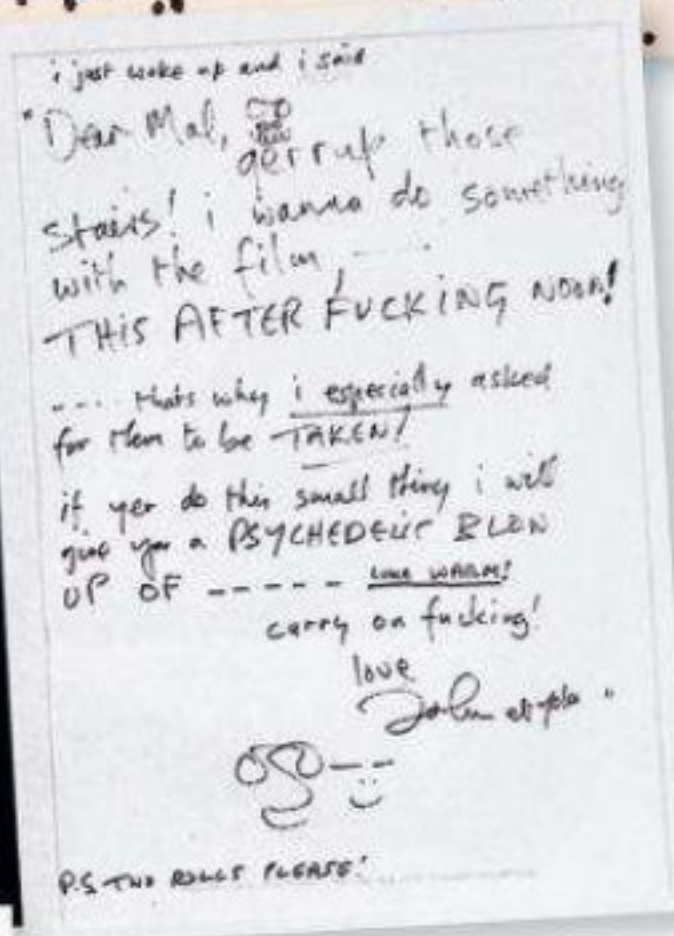 i just woke up and i said
"Dear Mal,
gerrup those
stairs! i wanna do something
with the film, .....
THIS AFTER FUCKING NOON!
.... thats why i especially asked
for them to be TAKEN!
if yer do this small thing i will
give yer a PSYCHEDELIC BLOW
UP OF ----- LUKE WARM!
carry on fucking!
love
John "
P.S. TWO ROLLS PLEASE!